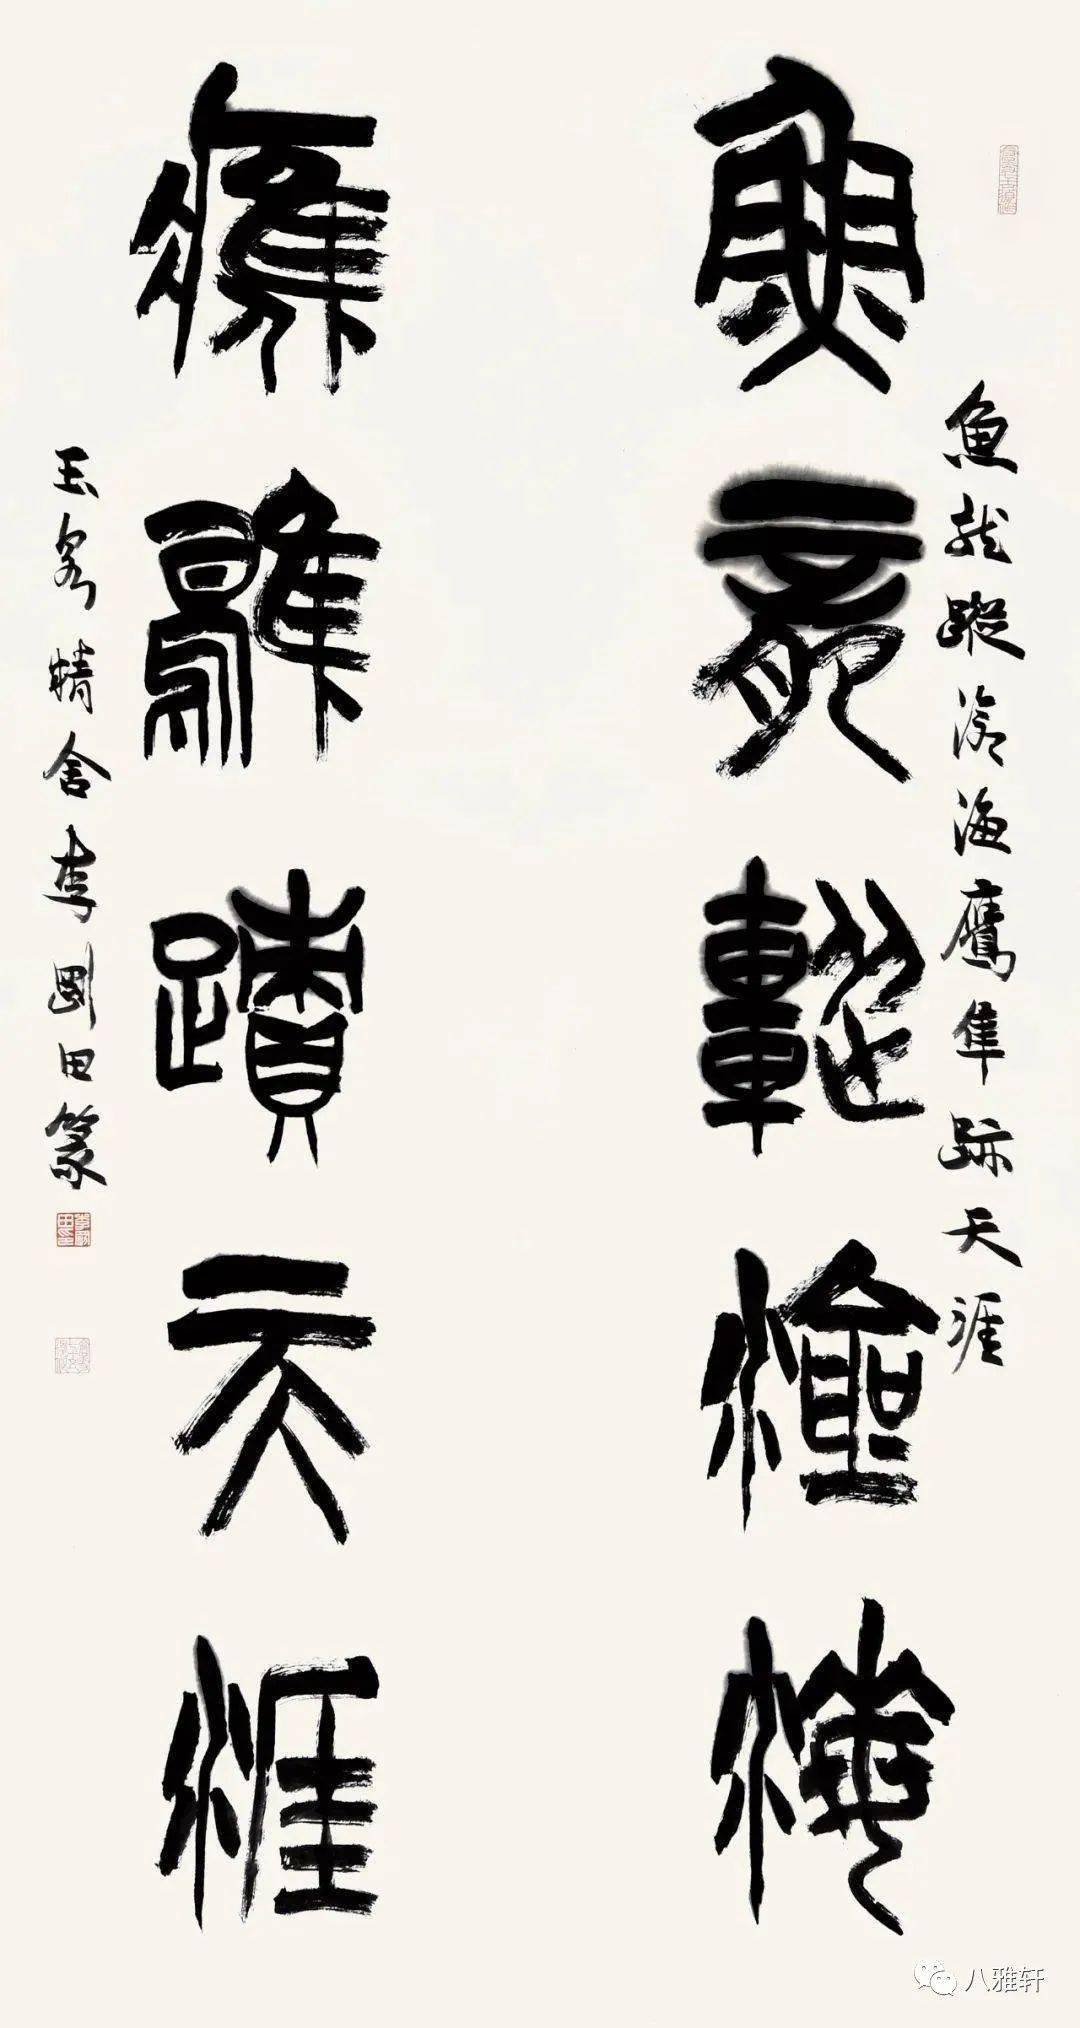 魚龍蹤滄海鷹隼跡天涯
魚龍蹤滄海
鷹隼蹟天涯
玉泉精舍李剛田篆
八雅轩